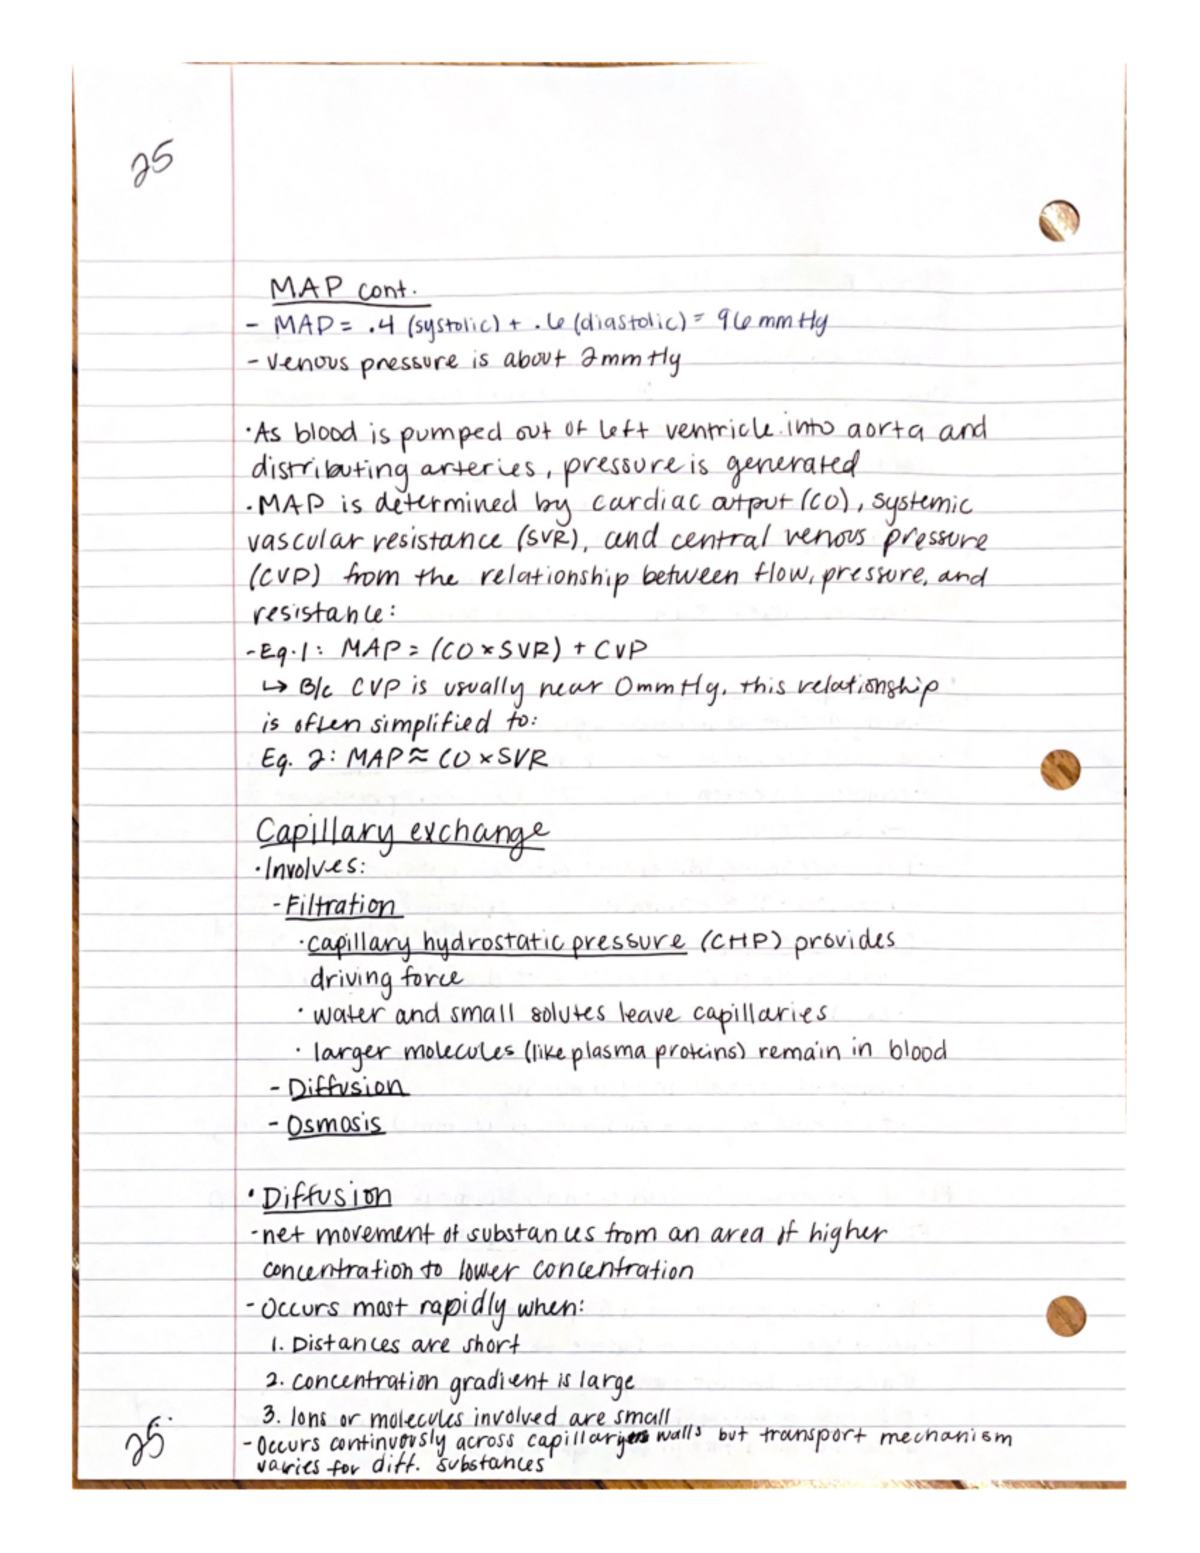 25
MAP cont.
- MAP = .4 (systolic) + .6 (diastolic) = 96 mmHg
- Venous pressure is about 2mmHg
·As blood is pumped out of left ventricle into aorta and
distributing arteries, pressure is generated
·MAP is determined by cardiac output (CO), systemic
vascular resistance (SVR), and central venous pressure
(CVP) from the relationship between flow, pressure, and
resistance:
-Eq.1: MAP = (CO × SVR) + CVP
↳ B/c CVP is usually near 0mmHg, this relationship
is often simplified to:
Eq. 2: MAP ≈ CO × SVR
Capillary exchange
·Involves:
- Filtration
·capillary hydrostatic pressure (CHP) provides
driving force
· water and small solutes leave capillaries
· larger molecules (like plasma proteins) remain in blood
- Diffusion
- Osmosis
· Diffusion
-net movement of substances from an area of higher
concentration to lower concentration
- Occurs most rapidly when:
1. Distances are short
2. concentration gradient is large
3. Ions or molecules involved are small
-Occurs continuously across capillary walls but transport mechanism
varies for diff. substances
25